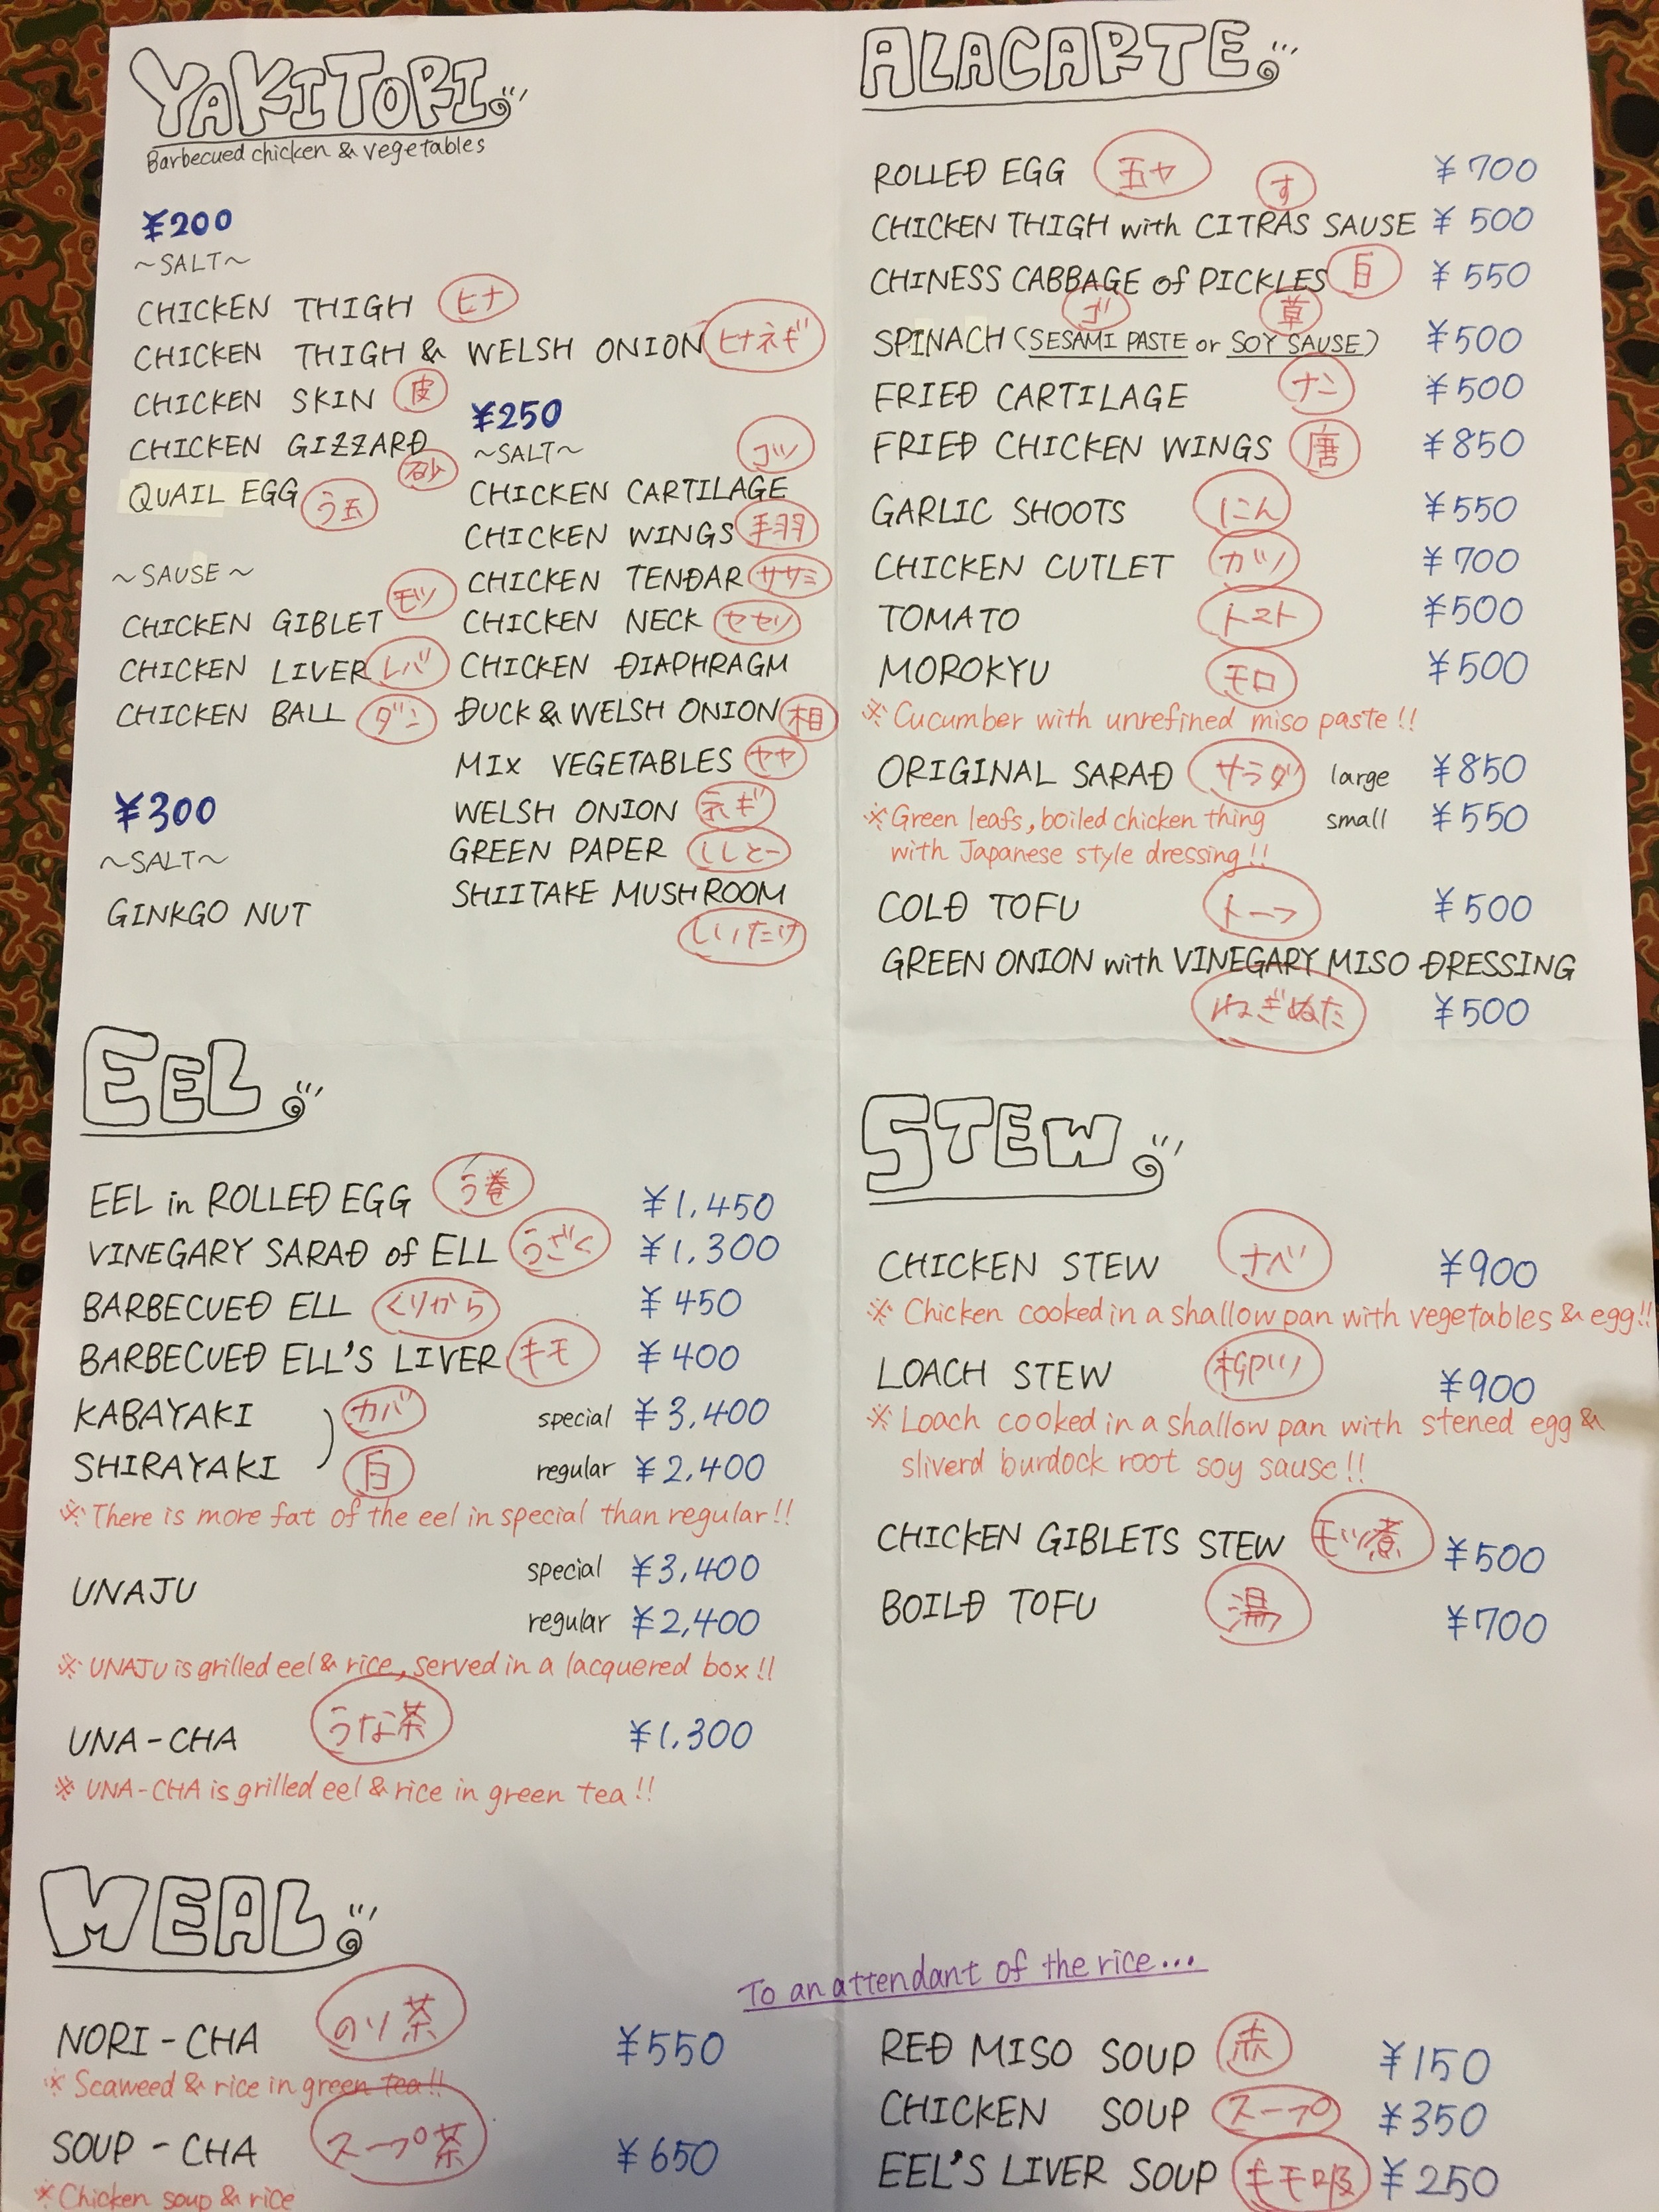 YAKITORI
Barbecued chicken & vegetables
¥200
~SALT~
CHICKEN THIGH ヒナ
CHICKEN THIGH & WELSH ONION ヒナネギ
CHICKEN SKIN 皮
CHICKEN GIZZARD 砂
QUAIL EGG う玉
~SAUSE~
CHICKEN GIBLET モツ
CHICKEN LIVER レバ
CHICKEN BALL ダン
¥250
~SALT~
CHICKEN CARTILAGE コツ
CHICKEN WINGS 手羽
CHICKEN TENDAR ササミ
CHICKEN NECK セセリ
CHICKEN DIAPHRAGM
DUCK & WELSH ONION 相
MIX VEGETABLES ヤヤ
WELSH ONION ネギ
GREEN PAPER ししとー
SHIITAKE MUSHROOM
しいたけ
¥300
~SALT~
GINKGO NUT
EEL
EEL in ROLLED EGG う巻 ¥1,450
VINEGARY SARAD of ELL うざく ¥1,300
BARBECUED ELL くりから ¥450
BARBECUED ELL'S LIVER キモ ¥400
KABAYAKI カバ special ¥3,400
SHIRAYAKI 白 regular ¥2,400
※There is more fat of the eel in special than regular!!
special ¥3,400
UNAJU
regular ¥2,400
※UNAJU is grilled eel & rice, served in a lacquered box!!
UNA-CHA うな茶 ¥1,300
※UNA-CHA is grilled eel & rice in green tea!!
MEAL
NORI-CHA のり茶 ¥550
※Seaweed & rice in green tea!!
SOUP-CHA スープ茶 ¥650
※Chicken soup & rice
ALACARTE
ROLLED EGG 玉ヤ ¥700
す
CHICKEN THIGH with CITRAS SAUSE ¥500
CHINESS CABBAGE of PICKLES 白 ¥550
ゴ 草
SPINACH (SESAMI PASTE or SOY SAUSE) ¥500
FRIED CARTILAGE ナン ¥500
FRIED CHICKEN WINGS 唐 ¥850
GARLIC SHOOTS にん ¥550
CHICKEN CUTLET カツ ¥700
TOMATO トマト ¥500
MOROKYU モロ ¥500
※Cucumber with unrefined miso paste!!
ORIGINAL SARAD サラダ large ¥850
※Green leafs, boiled chicken thing small ¥550
with Japanese style dressing!!
COLD TOFU トーフ ¥500
GREEN ONION with VINEGARY MISO DRESSING
ねぎぬた ¥500
STEW
CHICKEN STEW ナベ ¥900
※Chicken cooked in a shallow pan with vegetables & egg!!
LOACH STEW 柳川 ¥900
※Loach cooked in a shallow pan with stened egg &
sliverd burdock root soy sause!!
CHICKEN GIBLETS STEW モツ煮 ¥500
BOILD TOFU 湯 ¥700
To an attendant of the rice...
RED MISO SOUP 赤 ¥150
CHICKEN SOUP スープ ¥350
EEL'S LIVER SOUP キモ吸 ¥250